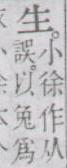 生。
小徐作从
誤。以兔爲